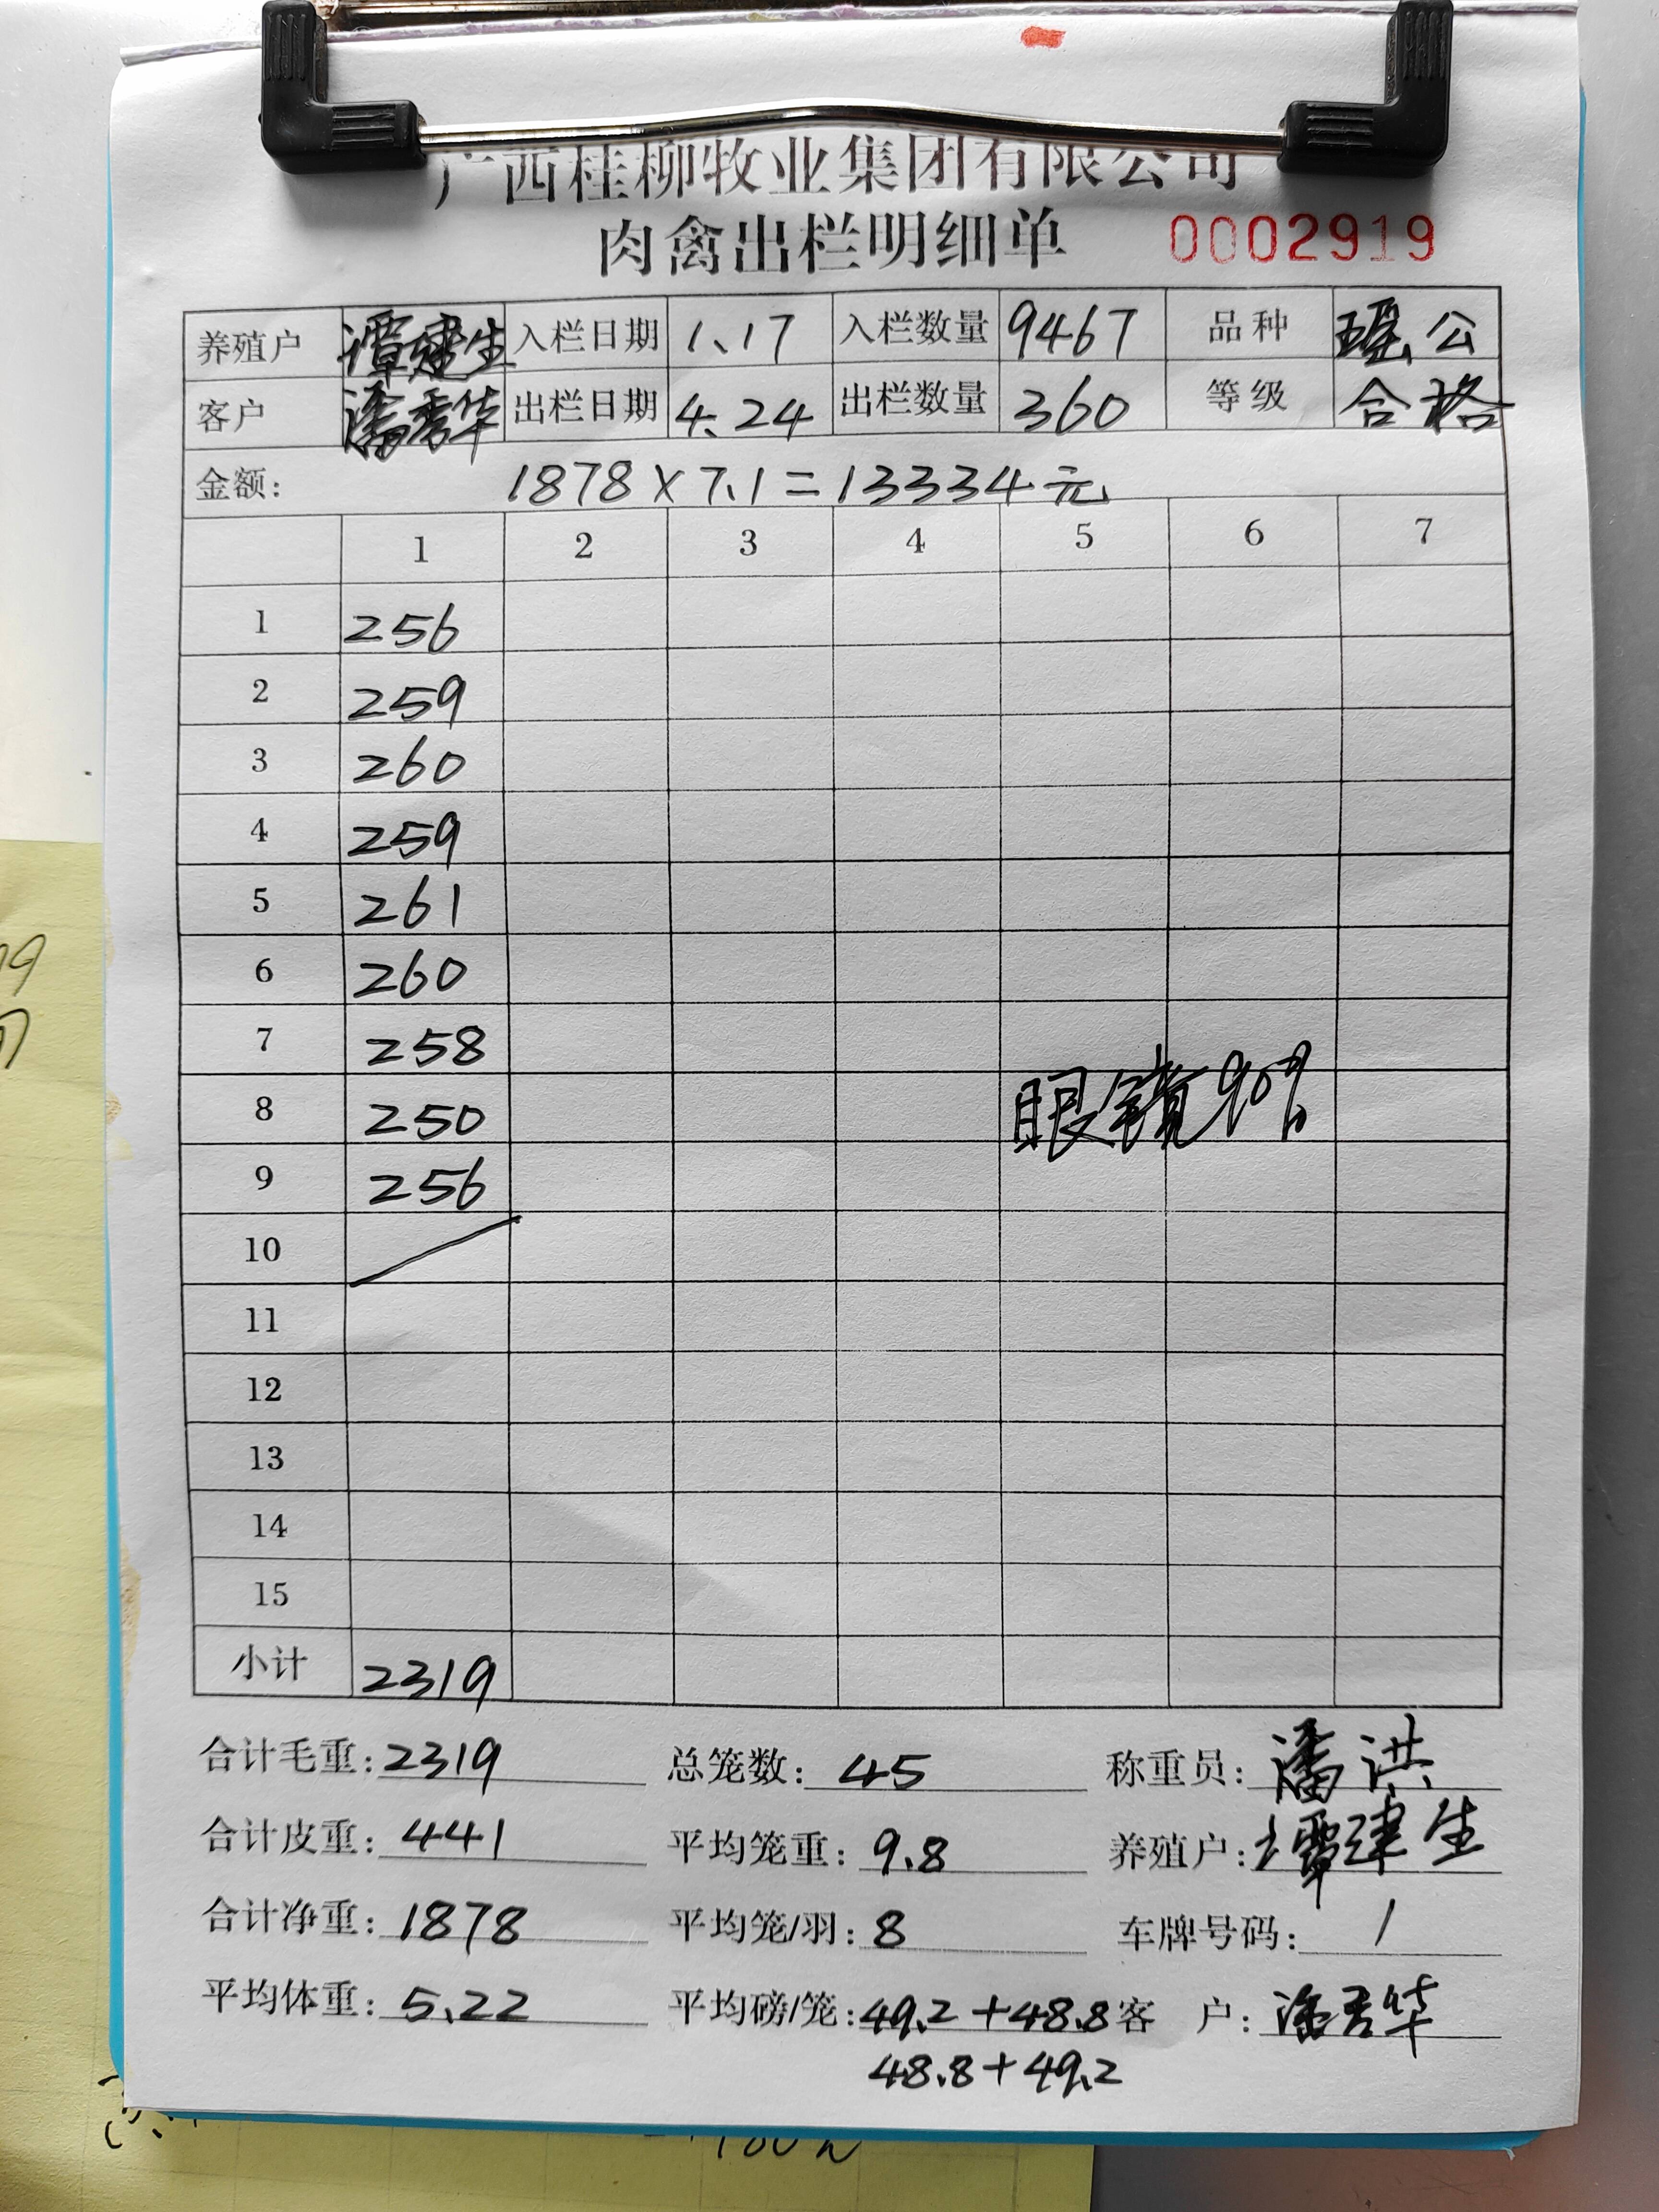 广西桂柳牧业集团有限公司
肉禽出栏明细单 0002919
养殖户 谭建生 入栏日期 1、17 入栏数量 9467 品种 瑶公
客户 潘秀华 出栏日期 4、24 出栏数量 360 等级 合格
金额: 1878×7.1=13334元
1 2 3 4 5 6 7
1 256
2 259
3 260
4 259
5 261
6 260
7 258
8 250 眼镜90%
9 256
10
11
12
13
14
15
小计 2319
合计毛重: 2319 总笼数: 45 称重员: 潘洪
合计皮重: 441 平均笼重: 9.8 养殖户: 谭建生
合计净重: 1878 平均笼/羽: 8 车牌号码: /
平均体重: 5.22 平均磅/笼: 49.2+48.8 客 户: 潘秀华
48.8+49.2